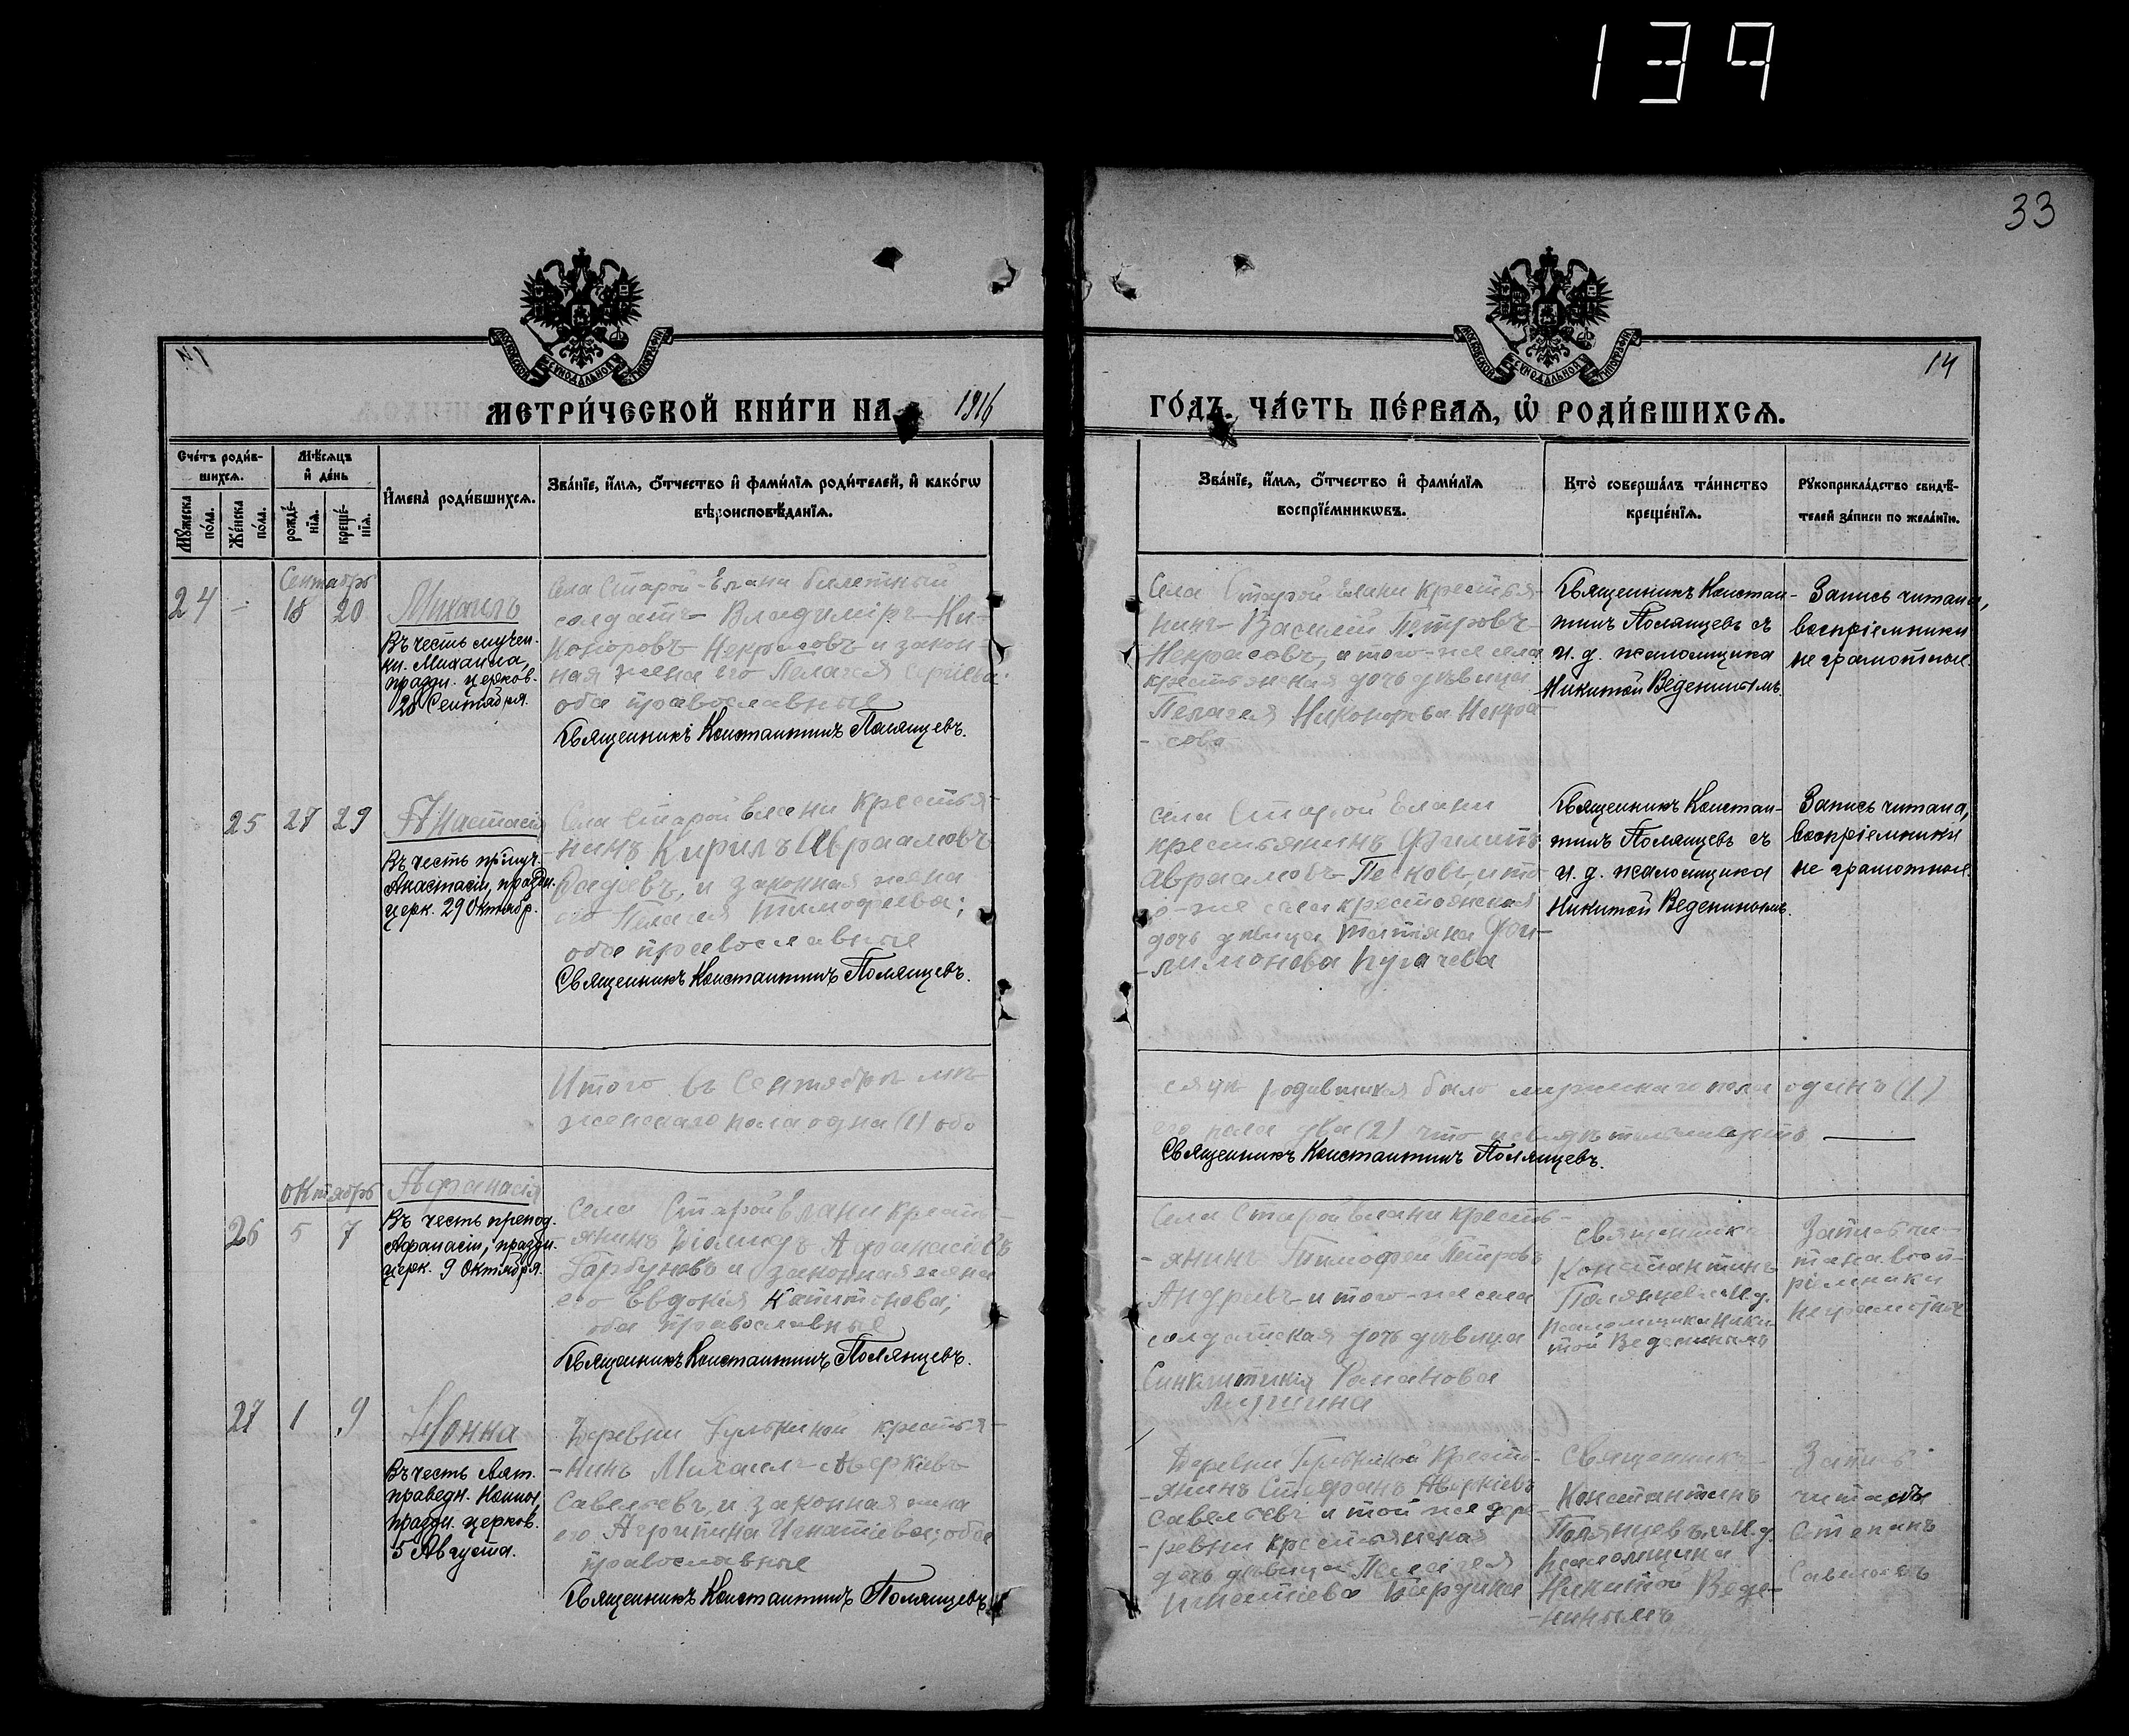 139
33
№1
14
МОСКОВСКОЙ СѴНОДАЛЬНОЙ ТИПОГРАФІИ
МОСКОВСКОЙ СѴНОДАЛЬНОЙ ТИПОГРАФІИ
МЕТРИ́ЧЕСКОЙ КНИ́ГИ НА 1916
ГО́ДЪ. ЧА́СТЬ ПЕ́РВАѦ, Ѽ РОДИ́ВШИХСѦ.
Сче́тъ роди́в-
шихсѧ.
Мꙋ́жеска по́ла.
Же́нска по́ла.
Мѣ́сѧцъ
и҆ де́нь
рожде́-
нїѧ.
креще́-
нїѧ.
И҆мена̀ роди́вшихсѧ.
Зва́нїе, и҆́мѧ, ѻ҆́тчество и҆ фами́лїѧ роди́телей, и҆ како́гѡ
вѣроисповѣ́данїѧ.
Зва́нїе, и҆́мѧ, ѻ҆́тчество и҆ фами́лїѧ
воспрїе́мникѡвъ.
Кто̀ соверша́лъ та́инство
креще́нїѧ.
Рꙋкоприкла́дство свидѣ́-
телей за́писи по жела́нїю.
Сентябрь
24 - 18 20
Михаилъ
Въ честь мучен-
ик. Михаила,
праздн. церков.
20 Сентября.
Села Старой-Елани билетный
солдатъ Владиміръ Ни-
коноровъ Некрасовъ и закон-
ная жена его Пелагея
оба православные
Священникъ Константинъ Полянцевъ.
Села Старой Елани крестья-
нинъ Василій Петровъ
Некрасовъ, и того-же села
крестьянская дочь дѣвица
Пелагея Никонорова Некра-
сова
Священникъ Констан-
тинъ Полянцевъ съ
и. д. псаломщика
Никитой Веденинымъ.
Запись читана,
воспріемники
не грамотные.
25 27 29
Анастасія
Въ честь
Анастасіи, праздн.
церк. 29 Октябр.
Села Старой Елани крестья-
нинъ Кирилъ Авраамовъ
и законная жена
его Пелагея Тимофеева;
оба православные
Священникъ Константинъ Полянцевъ.
села Старой Елани
крестьянинъ Филиппъ
Авраамовъ и то-
го-же села крестьянская
дочь дѣвица Татіана Фи-
лимонова Пугачева
Священникъ Констан-
тинъ Полянцевъ съ
и. д. псаломщика
Никитой Веденинымъ.
Запись читана,
воспріемники
не грамотные.
Итого въ Сентябрѣ мѣ-
сяцѣ родившихся было мужскаго пола одинъ (1)
женскаго пола одна (1) обо
его пола два (2) что и свидѣтельствуетъ
Священникъ Константинъ Полянцевъ.
Октябрь
26 5 7
Афанасія
Въ честь препод.
Афанасіи, праздн.
церк. 9 Октября.
Села Старой Елани кресть-
янинъ Афанасіевъ
Горбуновъ и законная жена
его Евдокія Капитонова;
оба православные
Священникъ Константинъ Полянцевъ.
Села Старой Елани кресть-
янинъ Тимофей Петровъ
Андреевъ и того-же села
солдатская дочь дѣвица
Синклитикія Романова
Священникъ
Константинъ
Полянцевъ съ И.д.
Псаломщика Ники-
той Веденинымъ
Запись чи-
тана восп-
ріемники
неграмотные
27 1 9
Нонна
Въ честь свят.
праведн. Нонны,
праздн. церков.
5 Августа.
Деревни крестья-
нинъ Михаилъ Аверкіевъ
Савельевъ, и законная жена
его Агрипина Игнатіева; оба
православные
Священникъ Константинъ Полянцевъ
Деревни кресть-
янинъ Стефанъ Аверкіевъ
Савельевъ и той же де-
ревни крестьянская
дочь дѣвица Пелагея
Игнатіева
Священникъ
Константинъ
Полянцевъ съ И.д.
Псаломщика
Никитой Веде-
нинымъ
Запись
читалъ
Степанъ
Савельевъ